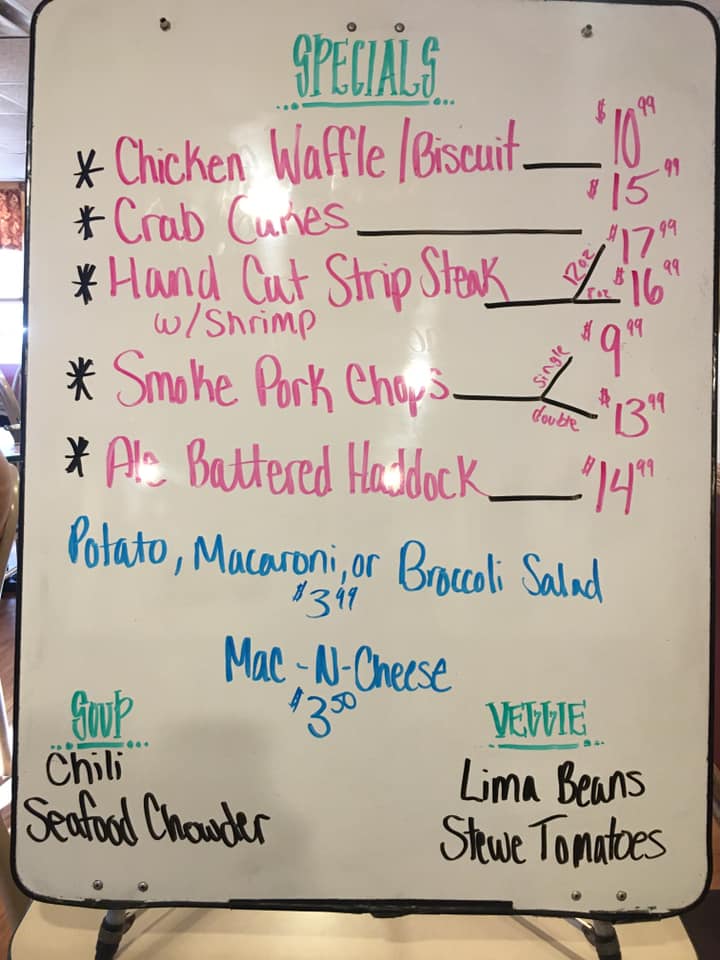 SPECIALS
* Chicken Waffle/Biscuit $10.99
* Crab Cakes $15.99
* Hand Cut Strip Steak 12oz $17.99
w/Shrimp 8oz $16.99
* Smoke Pork Chops single $9.99
double $13.99
* Ale Battered Haddock $14.99
Potato, Macaroni, or Broccoli Salad
$3.99
Mac-N-Cheese
$3.50
SOUP
Chili
Seafood Chowder
VEGGIE
Lima Beans
Stewe Tomatoes